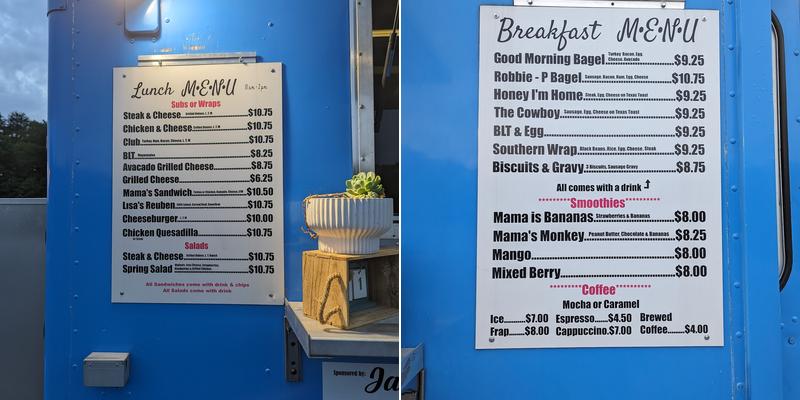 Lunch M·E·N·U 11am-2pm
Subs or Wraps
Steak & Cheese $10.75
Chicken & Cheese $10.75
Club Turkey, Ham, Bacon, Cheese, L, T, M $10.75
BLT Mayonnaise $8.25
Avocado Grilled Cheese $8.75
Grilled Cheese $6.25
Mama's Sandwich $10.50
Lisa's Reuben $10.75
Cheeseburger L, T, M $10.00
Chicken Quesadilla $10.75
Salads
Steak & Cheese $10.75
Spring Salad $10.75
All Sandwiches come with drink & chips
All Salads come with drink
1
Sponsored by:
Ja
Breakfast M·E·N·U
Good Morning Bagel Turkey, Bacon, Egg, Cheese, Avocado $9.25
Robbie - P Bagel Sausage, Bacon, Ham, Egg, Cheese $10.75
Honey I'm Home Steak, Egg, Cheese on Texas Toast $9.25
The Cowboy Sausage, Egg, Cheese on Texas Toast $9.25
BLT & Egg $9.25
Southern Wrap Black Beans, Rice, Egg, Cheese, Steak $9.25
Biscuits & Gravy 2 Biscuits, Sausage Gravy $8.75
All comes with a drink
Smoothies
Mama is Bananas Strawberries & Bananas $8.00
Mama's Monkey Peanut Butter, Chocolate & Bananas $8.25
Mango $8.00
Mixed Berry $8.00
Coffee
Mocha or Caramel
Ice $7.00 Espresso $4.50 Brewed
Frap $8.00 Cappuccino $7.00 Coffee $4.00